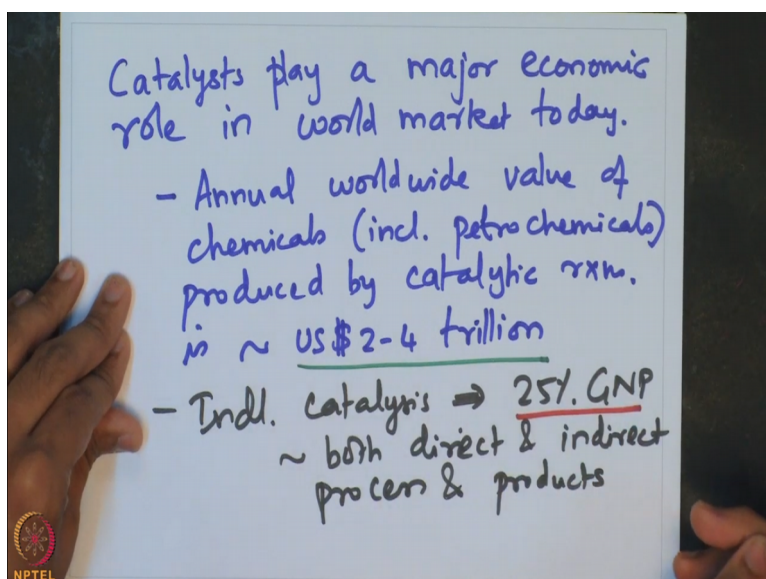 Catalysts play a major economic
role in world market today.
- Annual worldwide value of
chemicals (incl. petrochemicals)
produced by catalytic rxns.
is ~ US$ 2-4 trillion
- Indl. catalysis ⇒ 25%. GNP
~ both direct & indirect
process & products
NPTEL